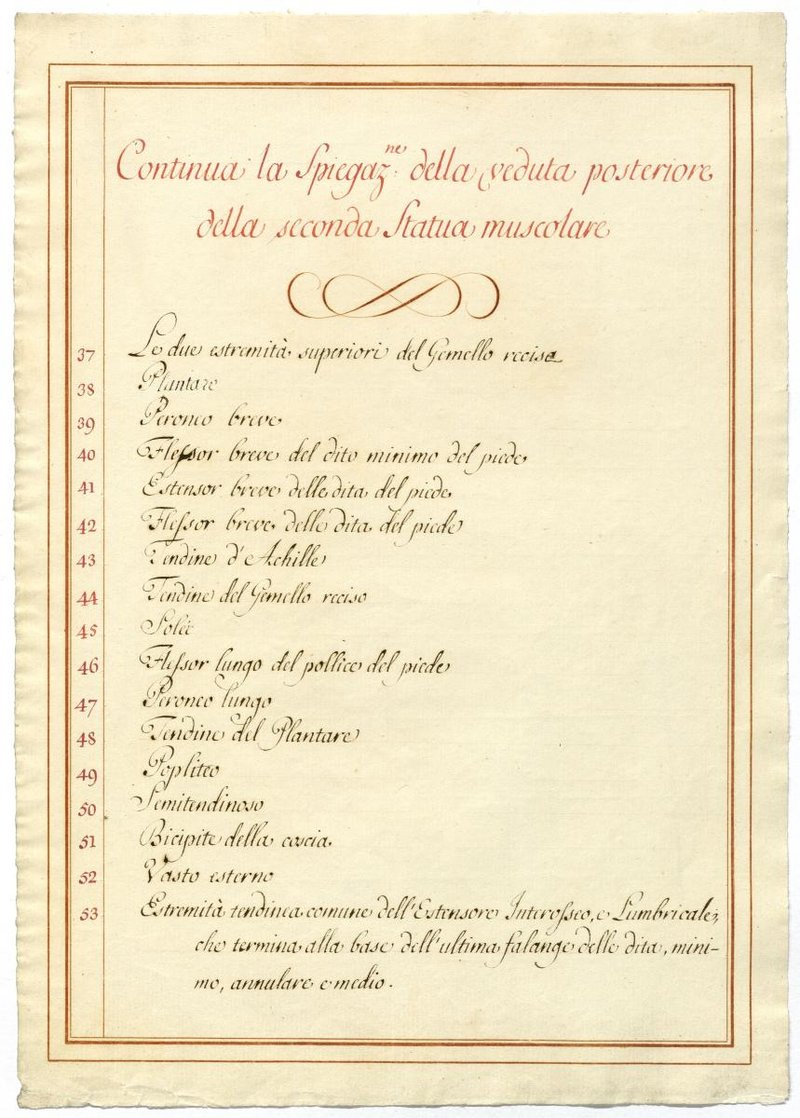 Continua la Spiegaz.ne della veduta posteriore
della seconda Statua muscolare
37 Le due estremità superiori del Gemello recise
38 Plantare
39 Peroneo breve
40 Flessor breve del dito minimo del piede
41 Estensor breve delle dita del piede
42 Flessor breve delle dita del piede
43 Tendine d'Achille
44 Tendine del Gemello reciso
45 Soleo
46 Flessor lungo del pollice del piede
47 Peroneo lungo
48 Tendine del Plantare
49 Popliteo
50 Semitendinoso
51 Bicipite della coscia
52 Vasto esterno
53 Estremità tendinea comune dell'Estensore Interosseo, e Lumbricale,
che termina alla base dell'ultima falange delle dita, mini-
mo, annulare e medio.